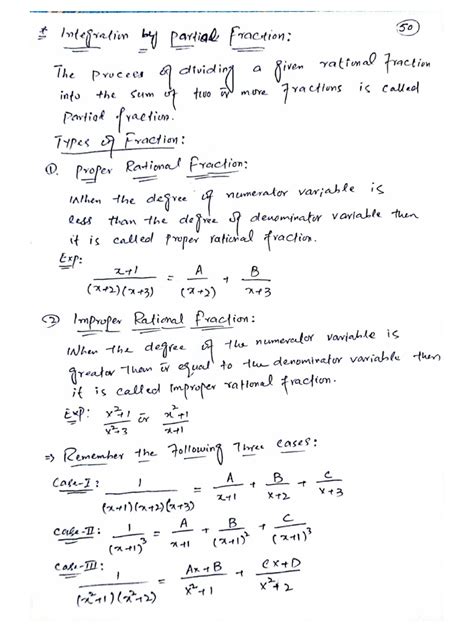 * Integration by Partial Fraction: 50
The Process of dividing a given rational fraction
into the sum of two or more fractions is called
Partial fraction.
Types of Fraction:
①. Proper Rational Fraction:
When the degree of numerator variable is
less than the degree of denominator variable then
it is called proper rational fraction.
Exp:
x+1/((x+2)(x+3)) = A/(x+2) + B/(x+3)
② Improper Rational Fraction:
When the degree of the numerator variable is
greater than or equal to the denominator variable then
it is called improper rational fraction.
Exp: (x²+1)/(x²+3) or (x²+1)/(x+1)
⇒ Remember the Following Three cases:
Case-I: 1/((x+1)(x+2)(x+3)) = A/(x+1) + B/(x+2) + C/(x+3)
Case-II: 1/(x+1)³ = A/(x+1) + B/(x+1)² + C/(x+1)³
Case-III: 1/((x²+1)(x²+2)) = (Ax+B)/(x²+1) + (Cx+D)/(x²+2)